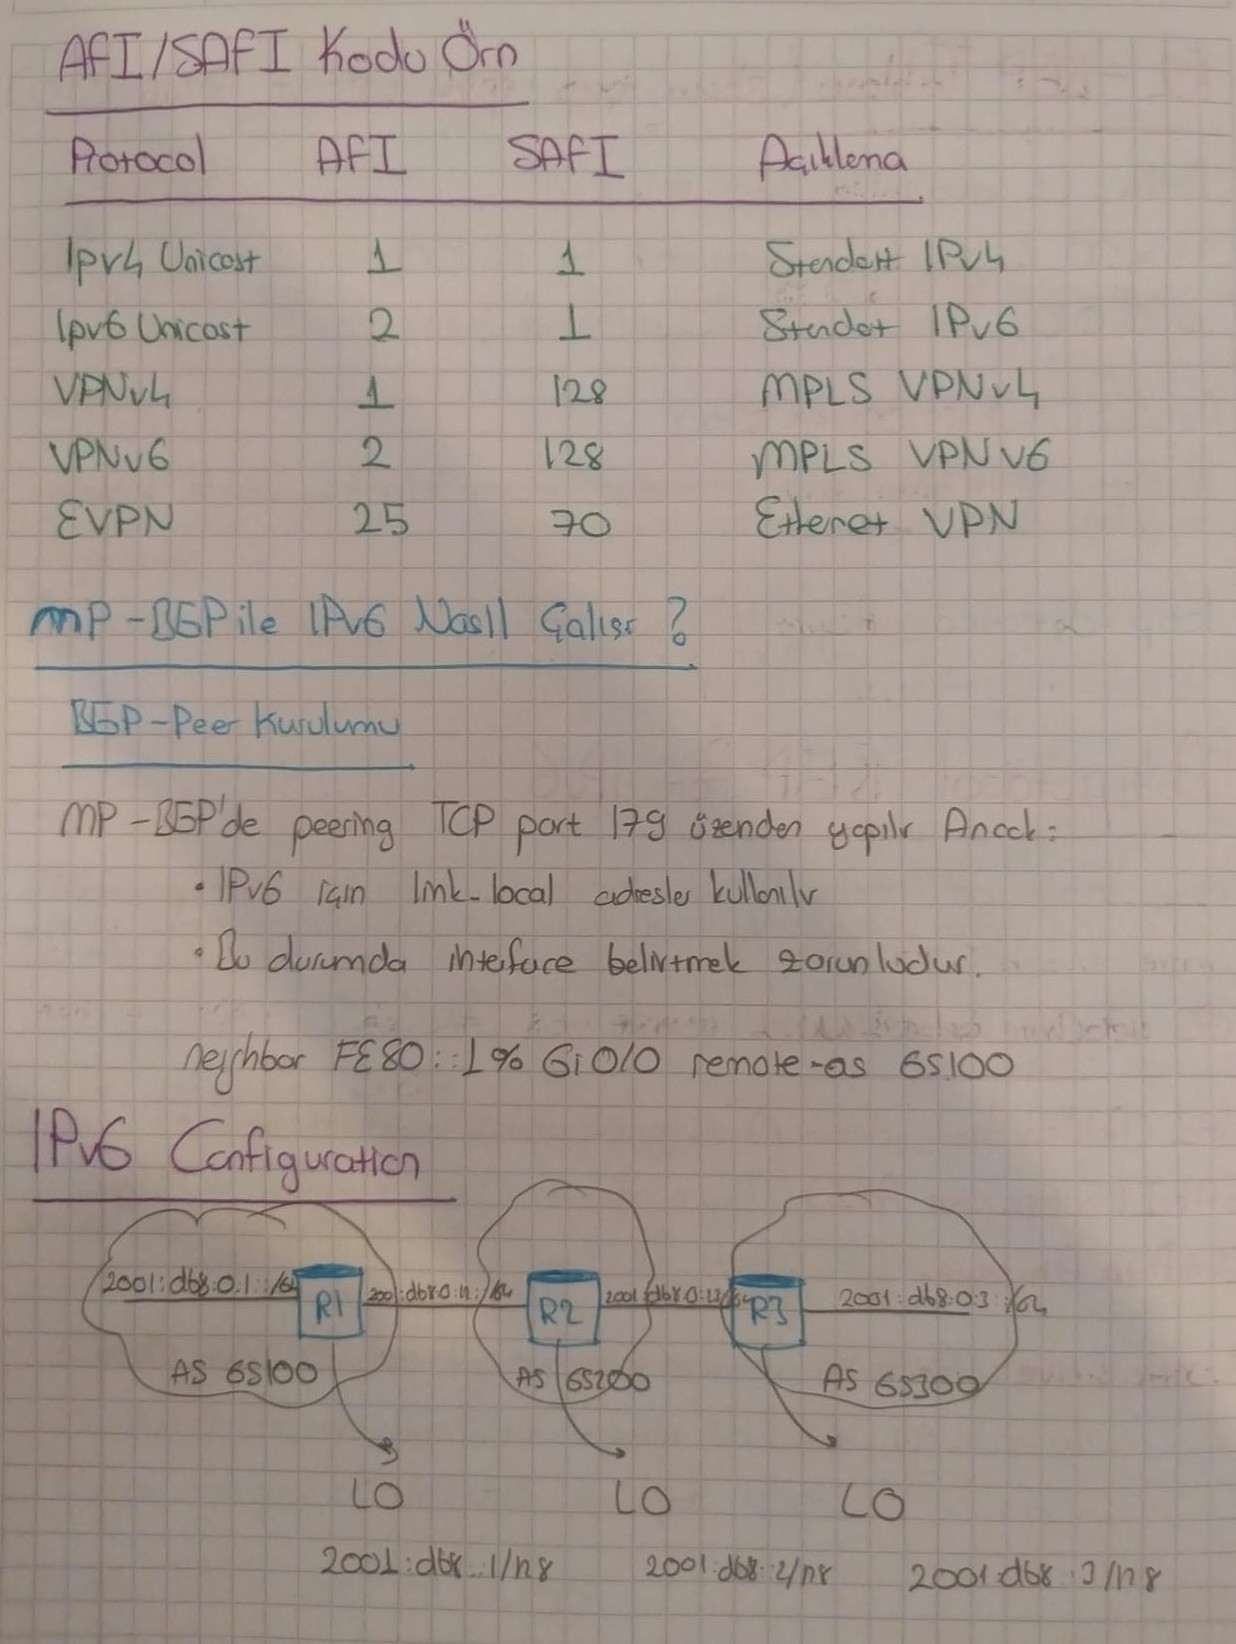 AFI/SAFI Kodu Örn
Protocol AFI SAFI Açıklama
Ipv4 Unicast 1 1 Standart IPv4
Ipv6 Unicast 2 1 Standat IPv6
VPNv4 1 128 MPLS VPNv4
VPNv6 2 128 MPLS VPNv6
EVPN 25 70 Etheret VPN
MP-BGP ile IPv6 Nasıl Çalışır ?
BGP-Peer Kurulumu
MP-BGP'de peering TCP port 179 üzerinden yapılır Ancak:
• IPv6 için link-local adresler kullanılır
• Bu durumda interface belirtmek zorunludur.
neighbor FE80::1% Gi0/0 remote-as 65100
IPv6 Configuration
2001:db8:0:1::/64 R1 2001:db8:0:12::/64 R2 2001:db8:0:23::/64 R3 2001:db8:0:3::/64
AS 65100 AS 65200 AS 65300
LO LO LO
2001:db8::1/128 2001:db8::2/128 2001:db8::3/128